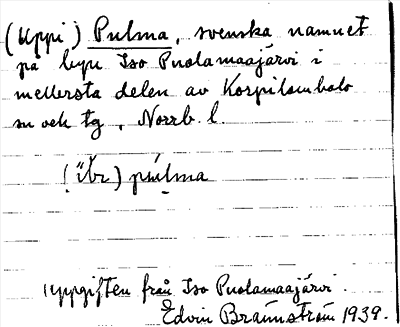 (Uppi) Pulma, svenska namnet
på byn Iso Puolamaajärvi i
mellersta delen av Korpilombolo
sn och tg, Norrb. l.
púlma
Uppgiften från Iso Puolamaajärvi.
Edvin Brännström 1939.